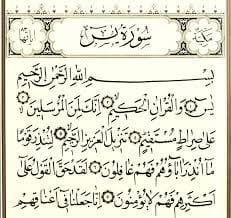 مكية سورة يس آياتها
بِسْمِ اللَّهِ الرَّحْمَٰنِ الرَّحِيمِ
يس وَالْقُرْآنِ الْحَكِيمِ إِنَّكَ لَمِنَ الْمُرْسَلِينَ
عَلَىٰ صِرَاطٍ مُسْتَقِيمٍ تَنْزِيلَ الْعَزِيزِ الرَّحِيمِ لِتُنْذِرَ قَوْمًا
مَا أُنْذِرَ آبَاؤُهُمْ فَهُمْ غَافِلُونَ لَقَدْ حَقَّ الْقَوْلُ عَلَىٰ
أَكْثَرِهِمْ فَهُمْ لَا يُؤْمِنُونَ إِنَّا جَعَلْنَا فِي أَعْنَاقِهِمْ